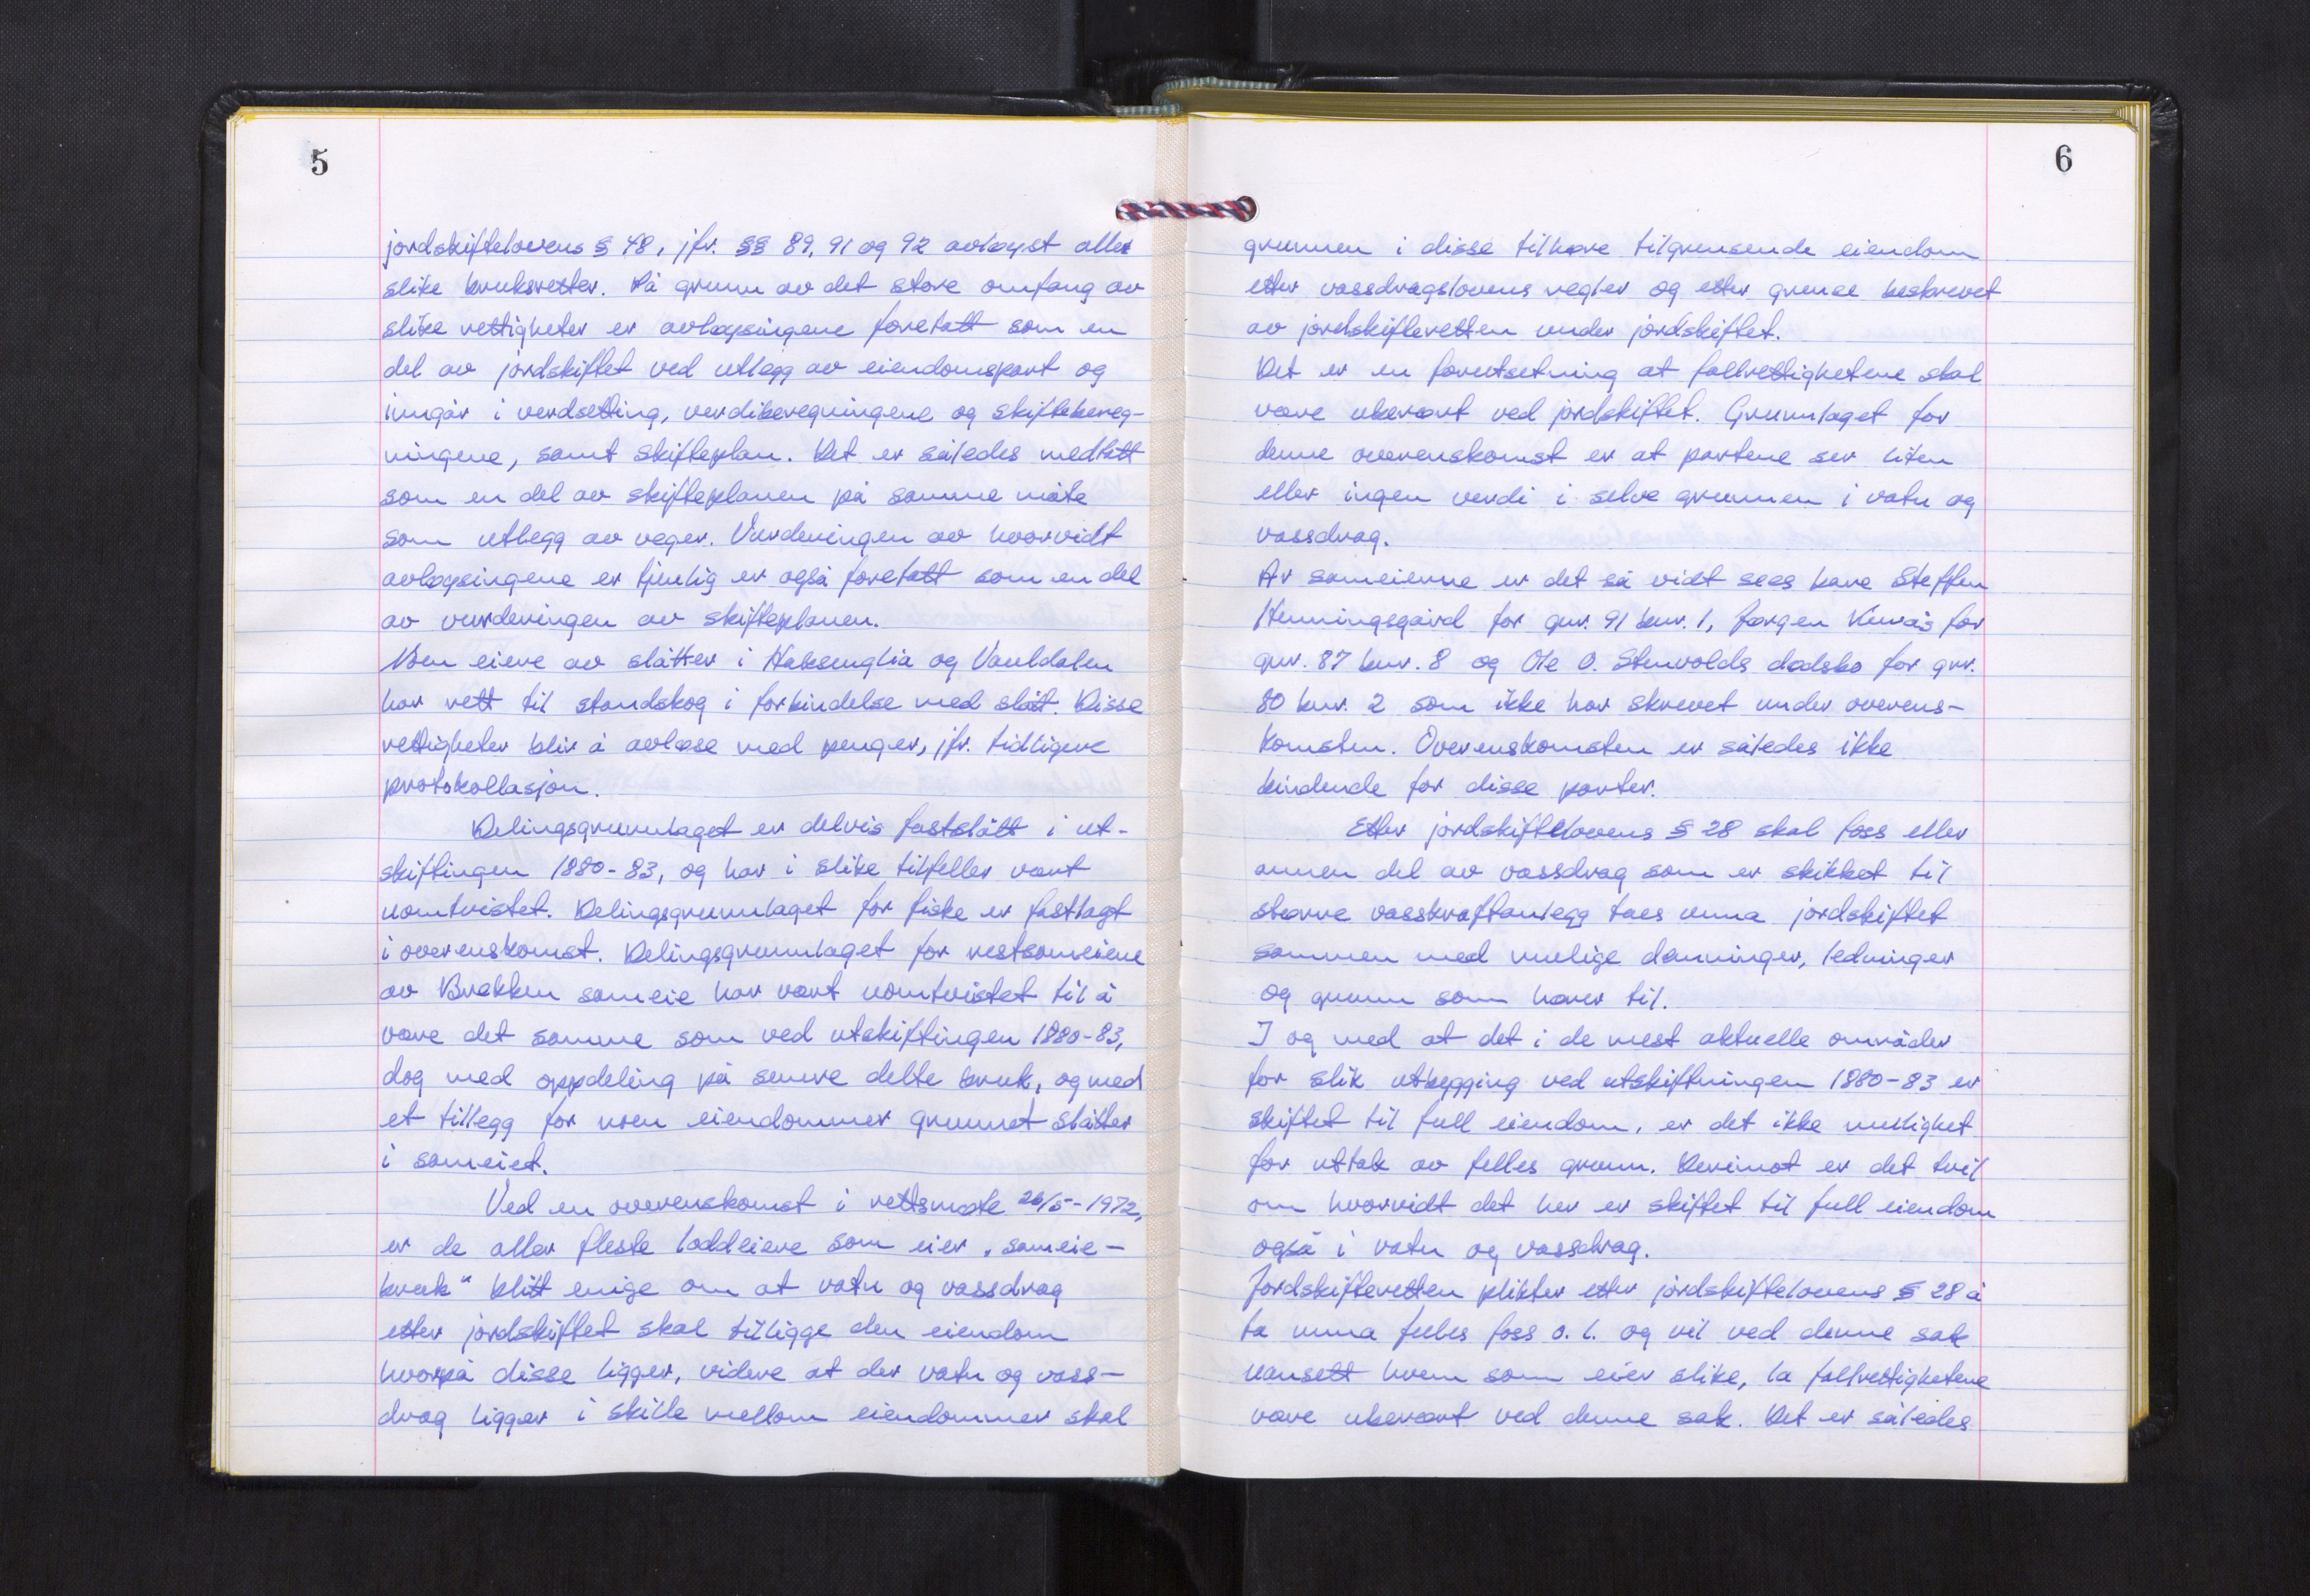 5
jordskiftelovens § 48, jfr. §§ 89, 91 og 92 avløyst alle
slike bruksretter. På grunn av det store omfang av
slike rettigheter er avløysingene foretatt som en
del av jordskiftet ved utlegg av eiendomspart og
inngår i verdsetting, verdiberegningene og skiftebereg-
ningene, samt skifteplan. Det er således medtatt
som en del av skifteplanen på samme måte
som utlegg av veger. Vurderingen av hvorvidt
avløysingene er tjenlig er også foretatt som en del
av vurderingen av skifteplanen.
Noen eiere av slåtter i Haksenglia og Vauldalen
har rett til standskog i forbindelse med slått. Disse
rettigheter blir å avløse med penger, jfr. tidligere
protokollasjon.
Delingsgrunnlaget er delvis fastslått i ut-
skiftingen 1880-83, og har i slike tilfeller vært
uomtvistet. Delingsgrunnlaget for fiske er fastlagt
i overenskomst. Delingsgrunnlaget for restsameiene
av Brekken sameie har vært uomtvistet til å
være det samme som ved utskiftingen 1880-83,
dog med oppdeling på senere delte bruk, og med
et tillegg for noen eiendommer grunnet slåtter
i sameiet.
Ved en overenskomst i rettsmøte 26/5-1972,
er de aller fleste loddeiere som eier „sameie-
bruk“ blitt enige om at vatn og vassdrag
etter jordskiftet skal tilligge den eiendom
hvorpå disse ligger, videre at der vatn og vass-
drag ligger i skille mellom eiendommer skal
6
grunnen i disse tilhøre tilgrensende eiendom
etter vassdragslovens regler og etter grense beskrevet
av jordskifteretten under jordskiftet.
Det er en forutsetning at fallrettighetene skal
være uberørt ved jordskiftet. Grunnlaget for
denne overenskomst er at partene ser liten
eller ingen verdi i selve grunnen i vatn og
vassdrag.
Av sameierne er det så vidt sees bare Steffen
Henningsgård for gnr. 91 bnr. 1, Jørgen Kurås for
gnr. 87 bnr. 8 og Ole O. Stenvolds dødsbo for gnr.
80 bnr. 2 som ikke har skrevet under overens-
komsten. Overenskomsten er således ikke
bindende for disse parter.
Etter jordskiftelovens § 28 skal foss eller
annen del av vassdrag som er skikket til
større vasskraftanlegg taes unna jordskiftet
sammen med mulige demninger, ledninger
og grunn som hører til.
I og med at det i de mest aktuelle områder
for slik utbygging ved utskiftningen 1880-83 er
skiftet til full eiendom, er det ikke mulighet
for uttak av felles grunn. Derimot er det tvil
om hvorvidt det her er skiftet til full eiendom
også i vatn og vassdrag.
Jordskifteretten plikter etter jordskiftelovens § 28 å
ta unna felles foss o. l. og vil ved denne sak
uansett hvem som eier slike, la fallrettighetene
være uberørt ved denne sak. Det er således